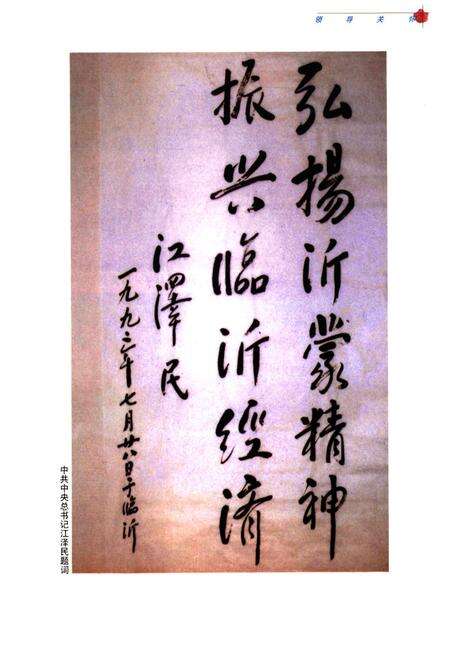 领导关怀
弘揚沂蒙精神
振兴臨沂經済
江澤民
一九九二年七月廿八日于临沂
中共中央总书记江泽民题词